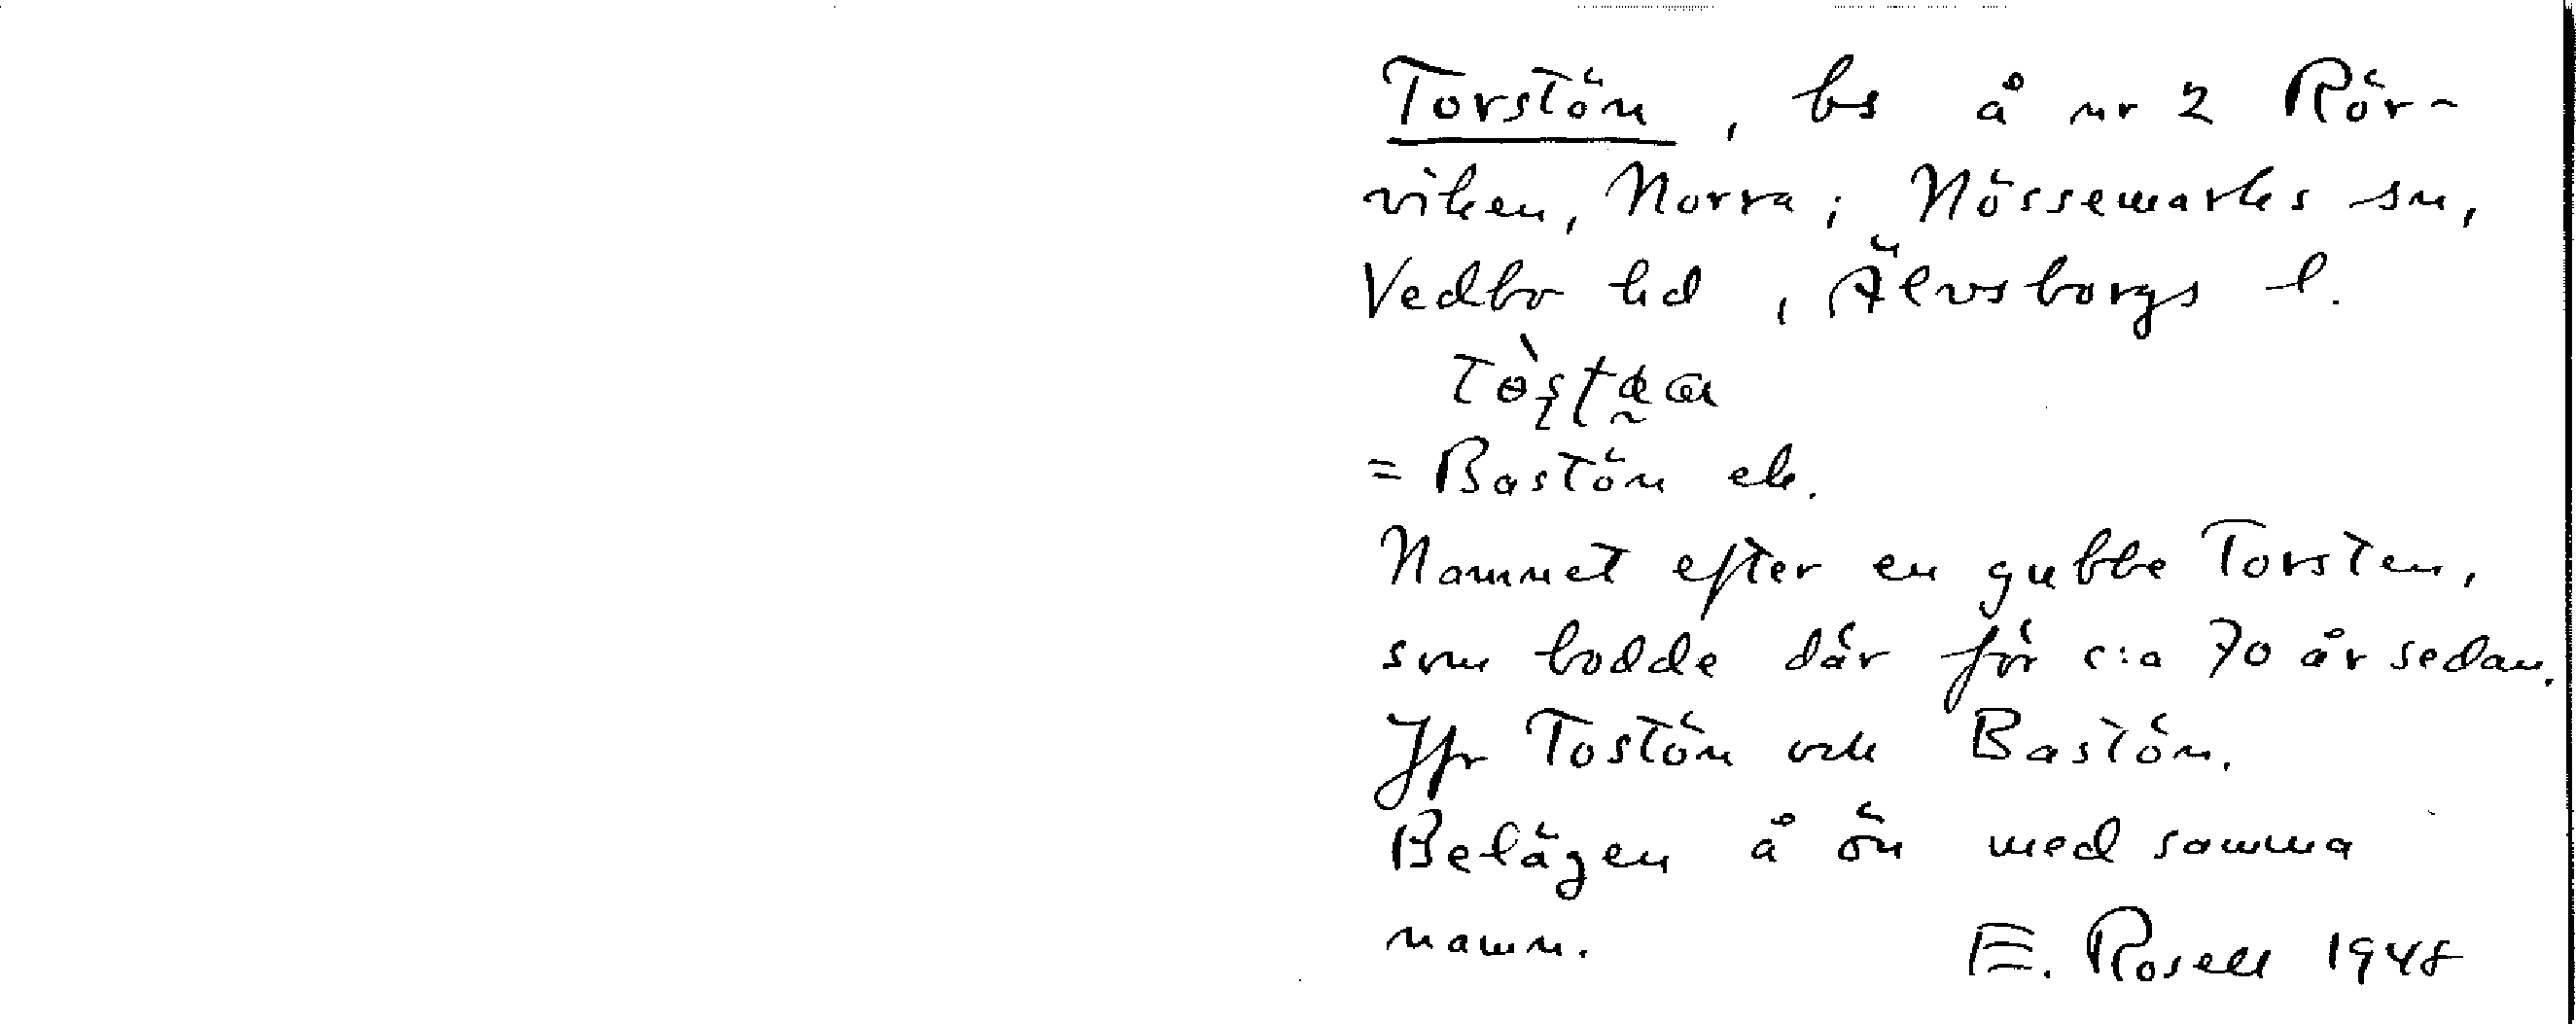 Torstön, bs å nr 2 Rör-
viken, Norra; Nössemarks sn,
Vedbo hd, Älvsborgs l.
= Bastön ek.
Namnet efter en gubbe Torsten,
som bodde där för c:a 70 år sedan.
Jfr Tostön och Bastön.
Belägen å ön med samma
namn. E. Rosell 1948